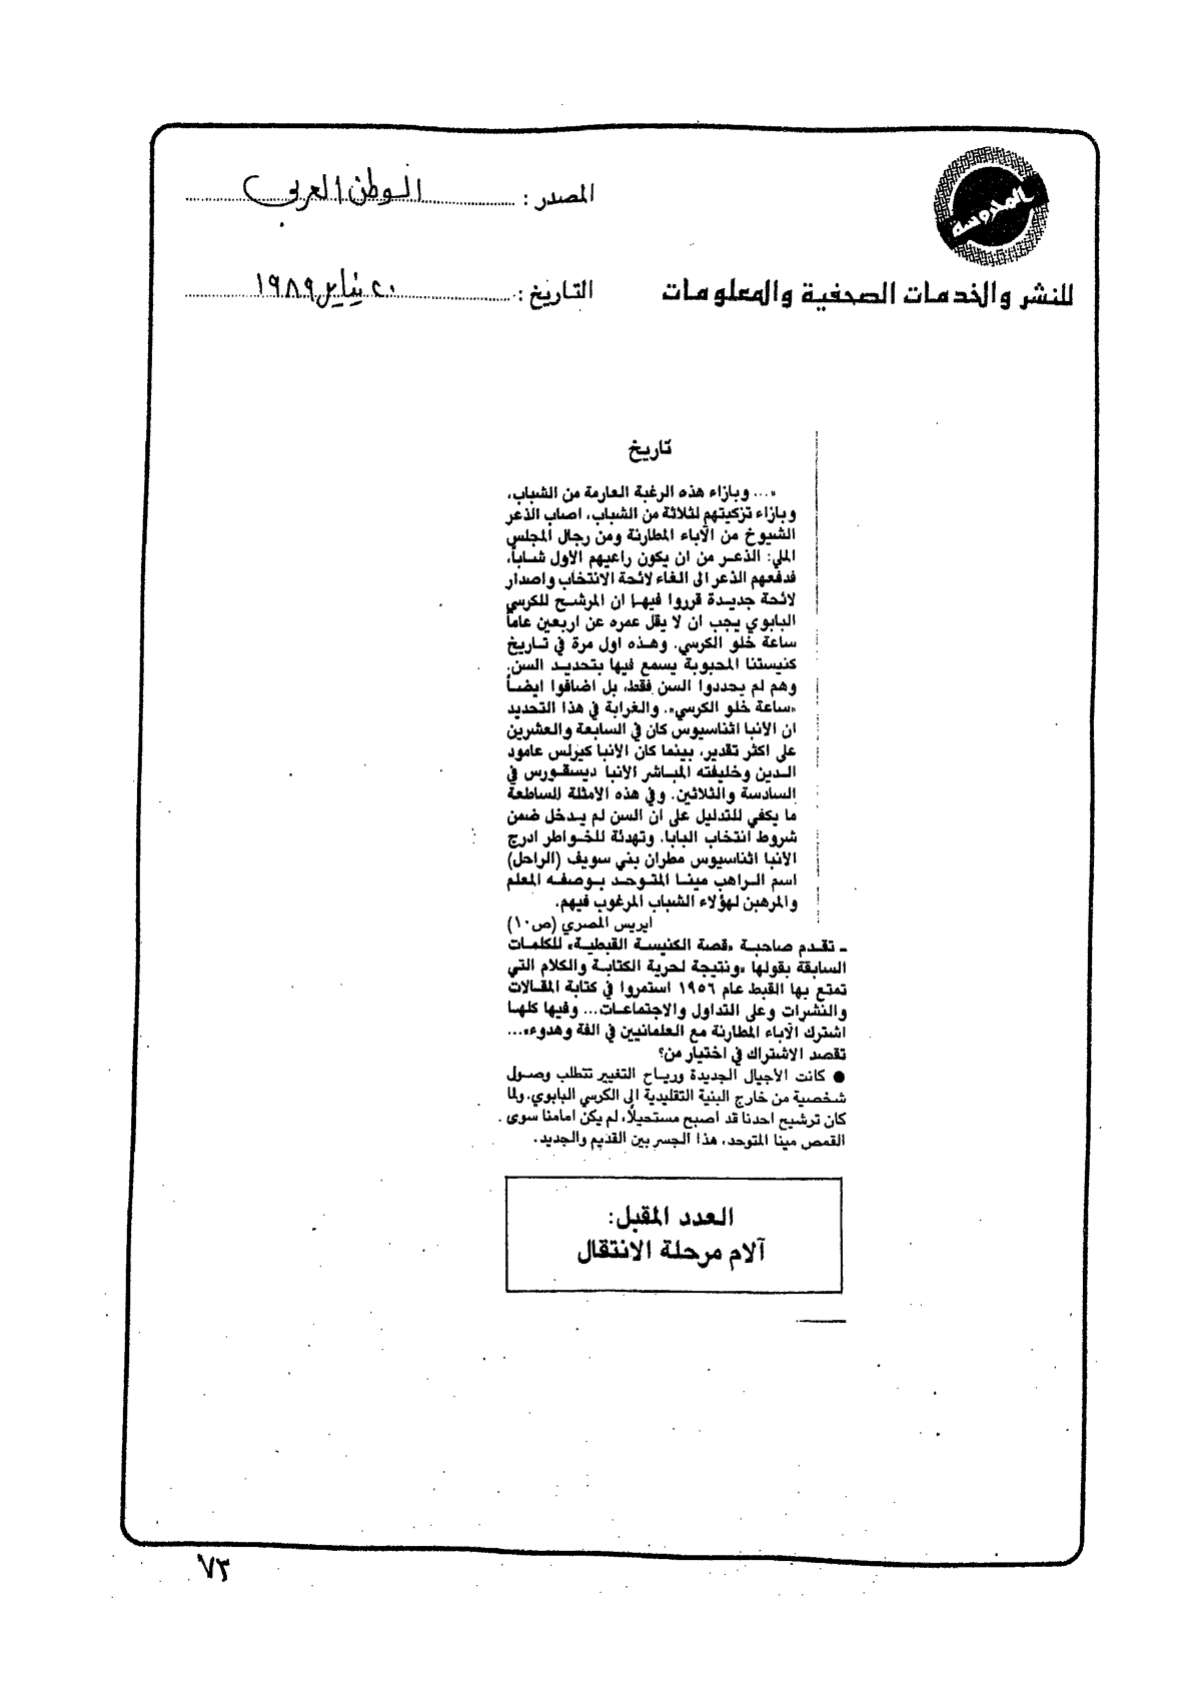 المحروسة
للنشر والخدمات الصحفية والمعلومات
المصدر : الوطن العربي
التاريخ : ٢٠ يناير ١٩٨٩
تاريخ
«... وبازاء هذه الرغبة العارمة من الشباب،
وبازاء تزكيتهم لثلاثة من الشباب، اصاب الذعر
الشيوخ من الآباء المطارنة ومن رجال المجلس
الملي: الذعر من ان يكون راعيهم الاول شاباً،
فدفعهم الذعر الى الغاء لائحة الانتخاب واصدار
لائحة جديدة قرروا فيها ان المرشح للكرسي
البابوي يجب ان لا يقل عمره عن اربعين عاماً
ساعة خلو الكرسي. وهذه اول مرة في تاريخ
كنيستنا المحبوبة يسمع فيها بتحديد السن.
وهم لم يحددوا السن فقط، بل اضافوا ايضاً
«ساعة خلو الكرسي». والغرابة في هذا التحديد
ان الانبا اثناسيوس كان في السابعة والعشرين
على اكثر تقدير، بينما كان الانبا كيرلس عامود
الدين وخليفته المباشر الانبا ديسقورس في
السادسة والثلاثين. وفي هذه الامثلة الساطعة
ما يكفي للتدليل على ان السن لم يدخل ضمن
شروط انتخاب البابا. وتهدئة للخواطر ادرج
الانبا اثناسيوس مطران بني سويف (الراحل)
اسم الراهب مينا المتوحد بوصفه المعلم
والمرهبن لهؤلاء الشباب المرغوب فيهم.
ايريس المصري (ص١٠)
ـ تقدم صاحبة «قصة الكنيسة القبطية» للكلمات
السابقة بقولها «ونتيجة لحرية الكتابة والكلام التي
تمتع بها القبط عام ١٩٥٦ استمروا في كتابة المقالات
والنشرات وعلى التداول والاجتماعات... وفيها كلها
اشترك الآباء المطارنة مع العلمانيين في الفة وهدوء»...
تقصد الاشتراك في اختيار من؟
● كانت الأجيال الجديدة ورياح التغيير تتطلب وصول
شخصية من خارج البنية التقليدية الى الكرسي البابوي. ولما
كان ترشيح احدنا قد اصبح مستحيلاً، لم يكن امامنا سوى
القمص مينا المتوحد، هذا الجسر بين القديم والجديد.
العدد المقبل:
آلام مرحلة الانتقال
٧٣